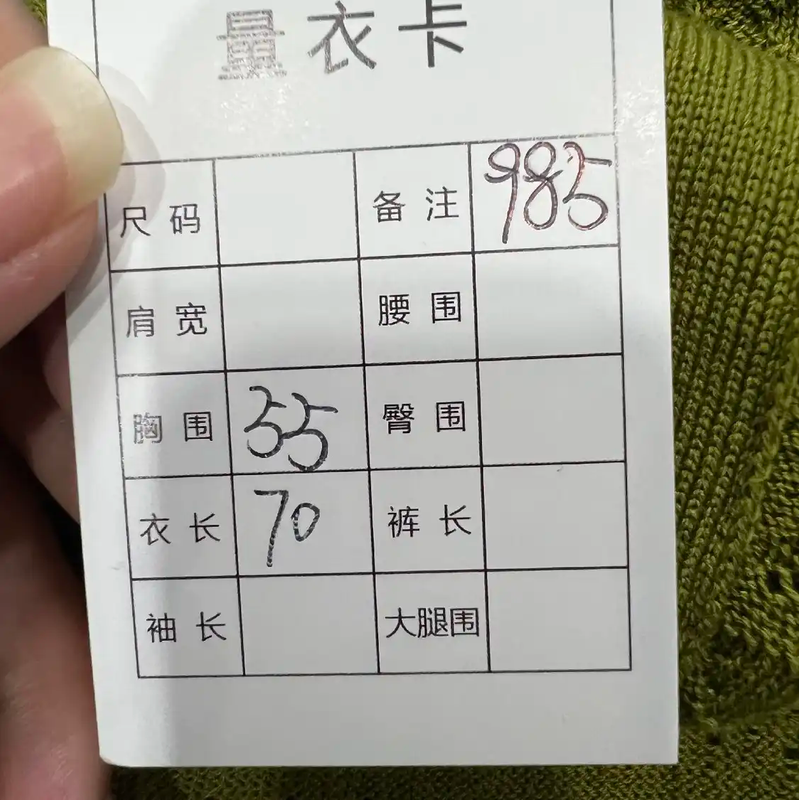 量衣卡
尺码 备注 985
肩宽 腰围
胸围 55 臀围
衣长 70 裤长
袖长 大腿围